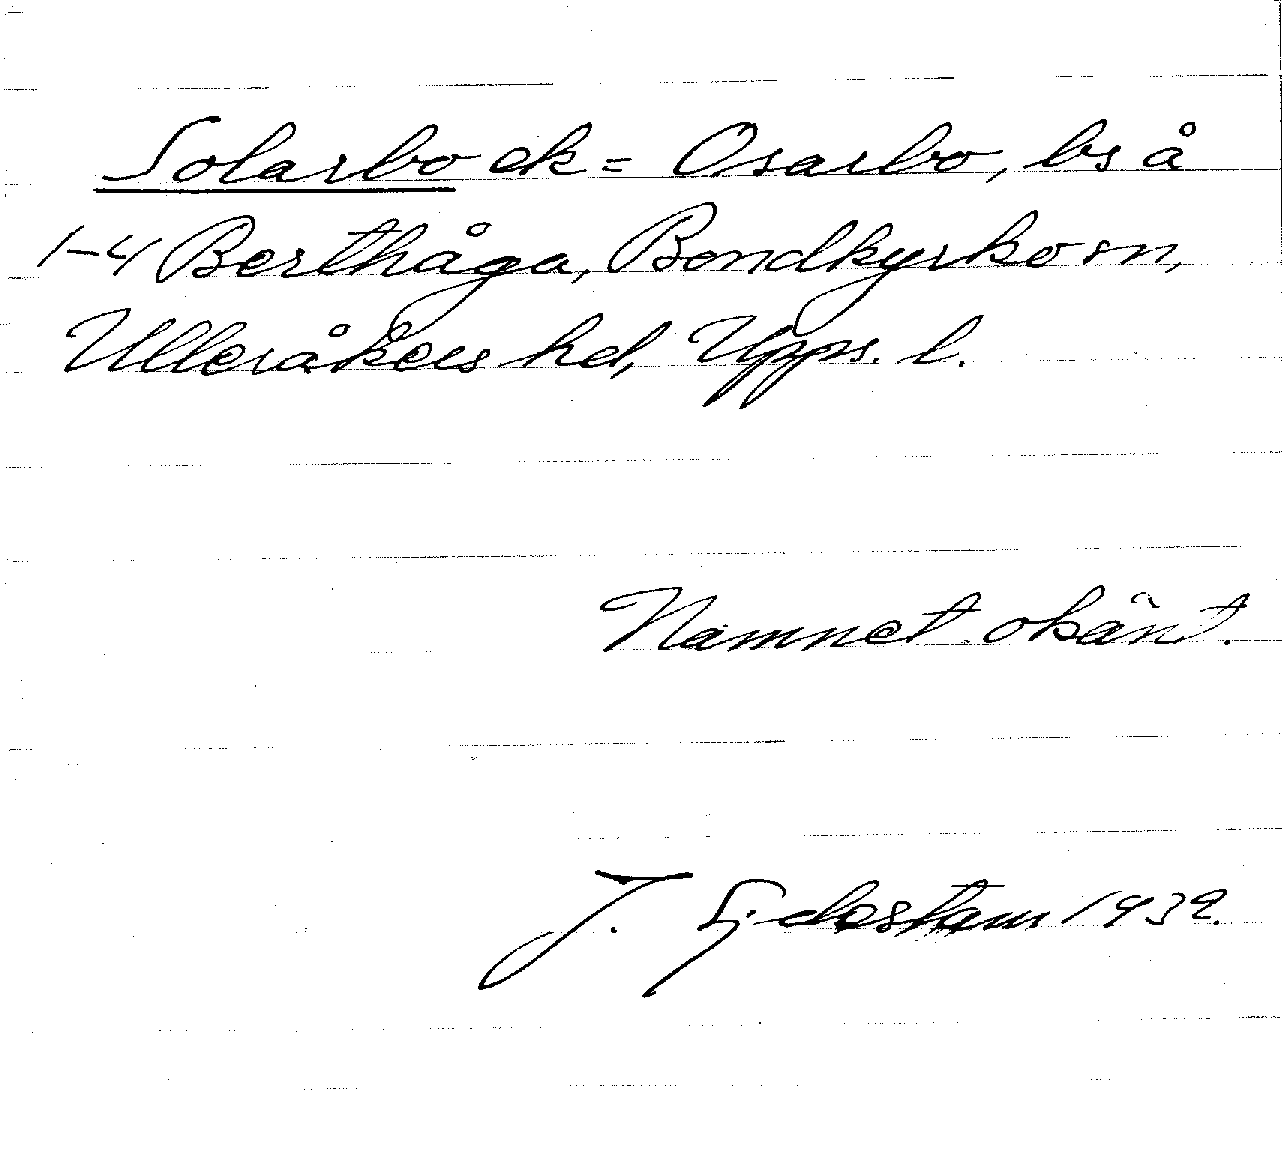 Solarbo ek = Osarbo, bs å
1-4 Berthåga, Bondkyrko sn,
Ulleråkers hd, Upps. l.
Namnet okänt.
J. Sjdestam 1932.